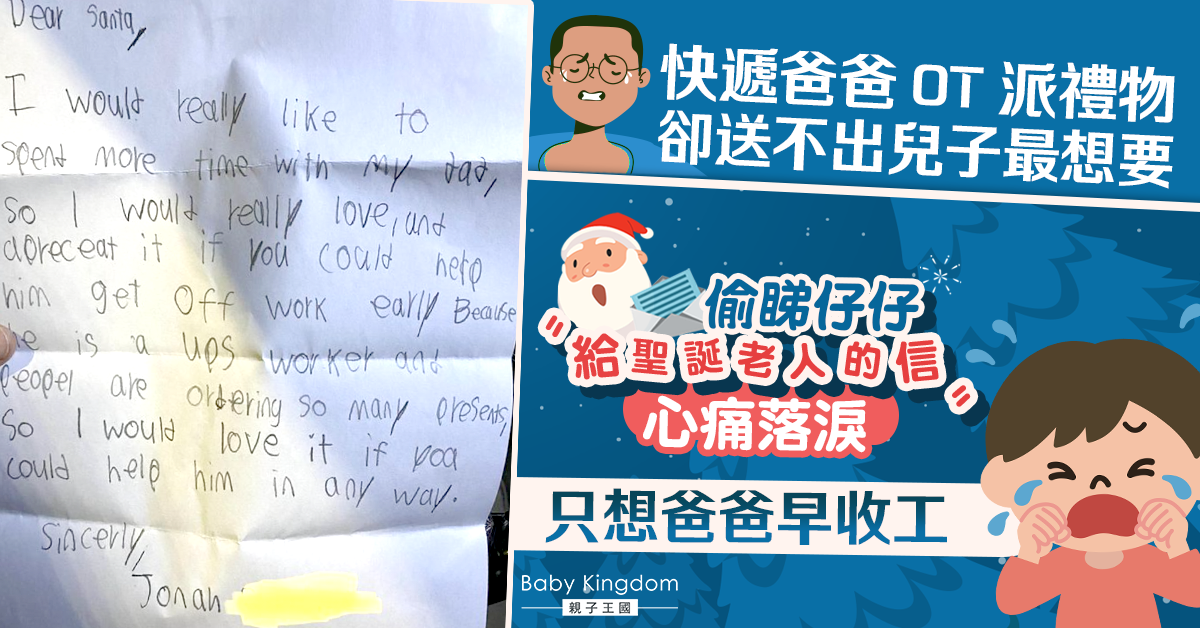 Dear Santa,
I would really like to
spent more time with my dad,
so I would really love, and
apreceat it if you could help
him get off work early Because
he is a ups worker and
peopel are ordering so many presents,
So I would love it if you
could help him in any way.
Sincerly,
Jonah
快遞爸爸 OT 派禮物
卻送不出兒子最想要
偷睇仔仔
"給聖誕老人的信"
心痛落淚
只想爸爸早收工
Baby Kingdom
親子王國